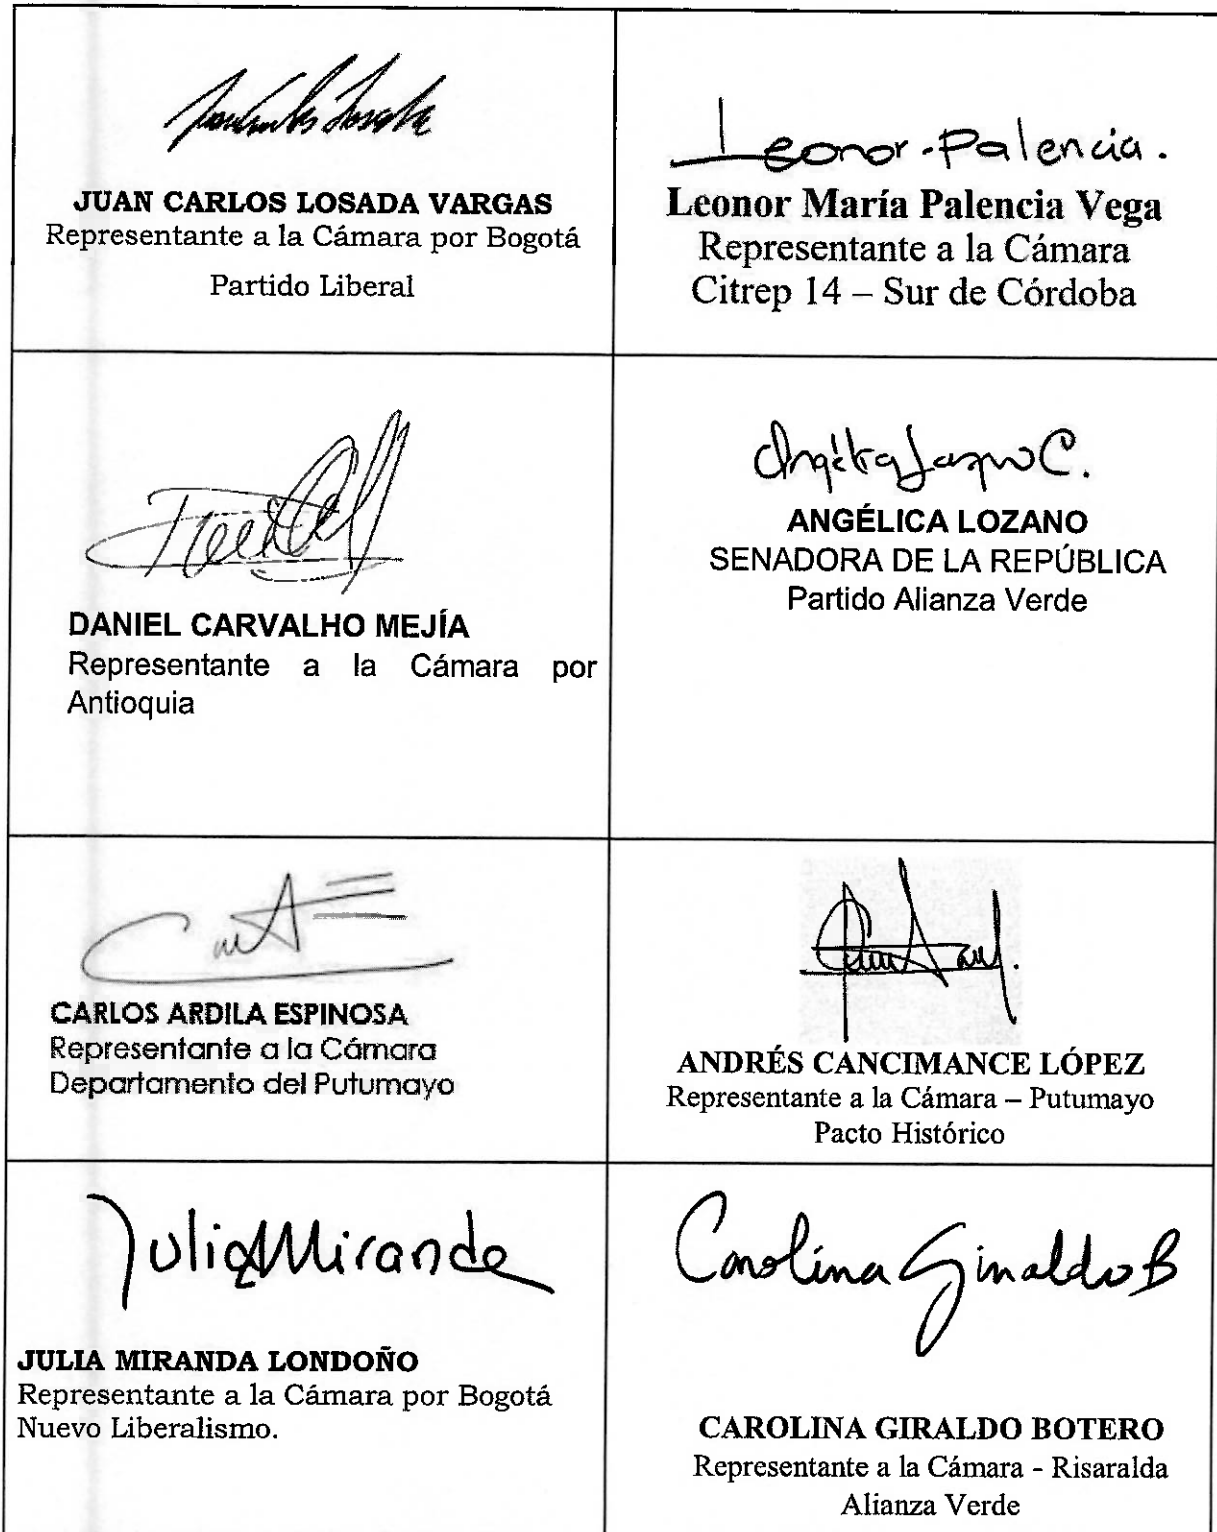 JUAN CARLOS LOSADA VARGAS
Representante a la Cámara por Bogotá
Partido Liberal
Leonor Palencia.
Leonor María Palencia Vega
Representante a la Cámara
Citrep 14 – Sur de Córdoba
DANIEL CARVALHO MEJÍA
Representante a la Cámara por
Antioquia
Angélica Lozano C.
ANGÉLICA LOZANO
SENADORA DE LA REPÚBLICA
Partido Alianza Verde
CARLOS ARDILA ESPINOSA
Representante a la Cámara
Departamento del Putumayo
ANDRÉS CANCIMANCE LÓPEZ
Representante a la Cámara – Putumayo
Pacto Histórico
Julia Miranda
JULIA MIRANDA LONDOÑO
Representante a la Cámara por Bogotá
Nuevo Liberalismo.
Carolina Giraldo B
CAROLINA GIRALDO BOTERO
Representante a la Cámara - Risaralda
Alianza Verde